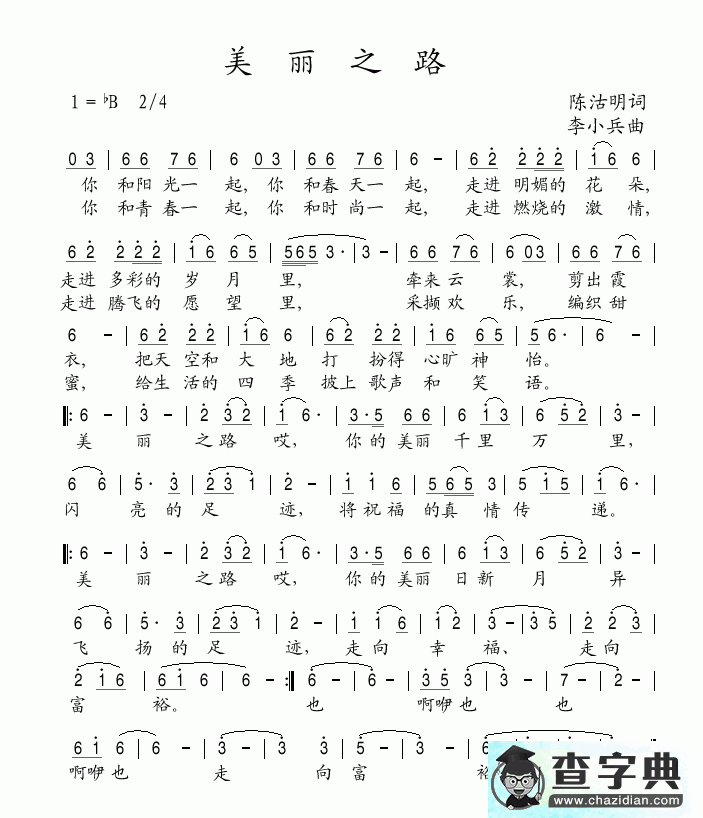 美丽之路
1 = ♭B 2/4
陈沽明词
李小兵曲
0 3 | 6 6 7 6 | 6 0 3 | 6 6 7 6 | 6 - | 6 2 2 2 2 | 1 6 6 |
你 和阳 光一 起, 你 和春 天一 起, 走进 明媚的 花 朵,
你 和青 春一 起, 你 和时 尚一 起, 走进 燃烧的 激 情,
6 2 2 2 2 | 1 6 6 5 | 5 6 5 3 · | 3 - | 6 6 7 6 | 6 0 3 | 6 6 7 6 |
走进 多彩的 岁 月 里, 牵来 云 裳, 剪出 霞
走进 腾飞的 愿 望 里, 采撷 欢 乐, 编织 甜
6 - | 6 2 2 2 | 1 6 6 | 6 2 2 2 | 1 6 6 5 | 5 6 · | 6 - |
衣, 把天 空和 大 地 打 扮得 心旷 神 怡。
蜜, 给生 活的 四 季 披上 歌声 和 笑 语。
‖: 6 - | 3 - | 2 3 2 | 1 6 · | 3 · 5 6 6 | 6 1 3 | 6 5 2 |
美 丽 之路 哎, 你的 美丽 千里 万 里,
6 6 | 5 · 3 | 2 3 1 | 2 - | 1 1 6 | 5 6 5 3 | 5 1 5 | 1 6 · |
闪 亮的 足 迹, 将祝福 的真 情传 递。
‖: 6 - | 3 - | 2 3 2 | 1 6 · | 3 · 5 6 6 | 6 1 3 | 6 5 2 |
美 丽 之路 哎, 你的 美丽 日新 月 异
6 6 | 5 · 3 | 2 3 1 | 2 - | 1 1 6 | 1 2 | 3 - | 3 5 | 2 2 3 |
飞 扬的 足 迹, 走向 幸 福、 走向
2 1 6 | 6 1 6 | 6 - :‖ 6 - | 6 - | 3 5 3 | 3 - | 7 - | 2 - |
富 裕。 也 啊咿也 也
6 1 6 | 6 - | 3 - | 3 3 5 |
啊咿也 走 向富 裕
查字典
www.chazidian.com